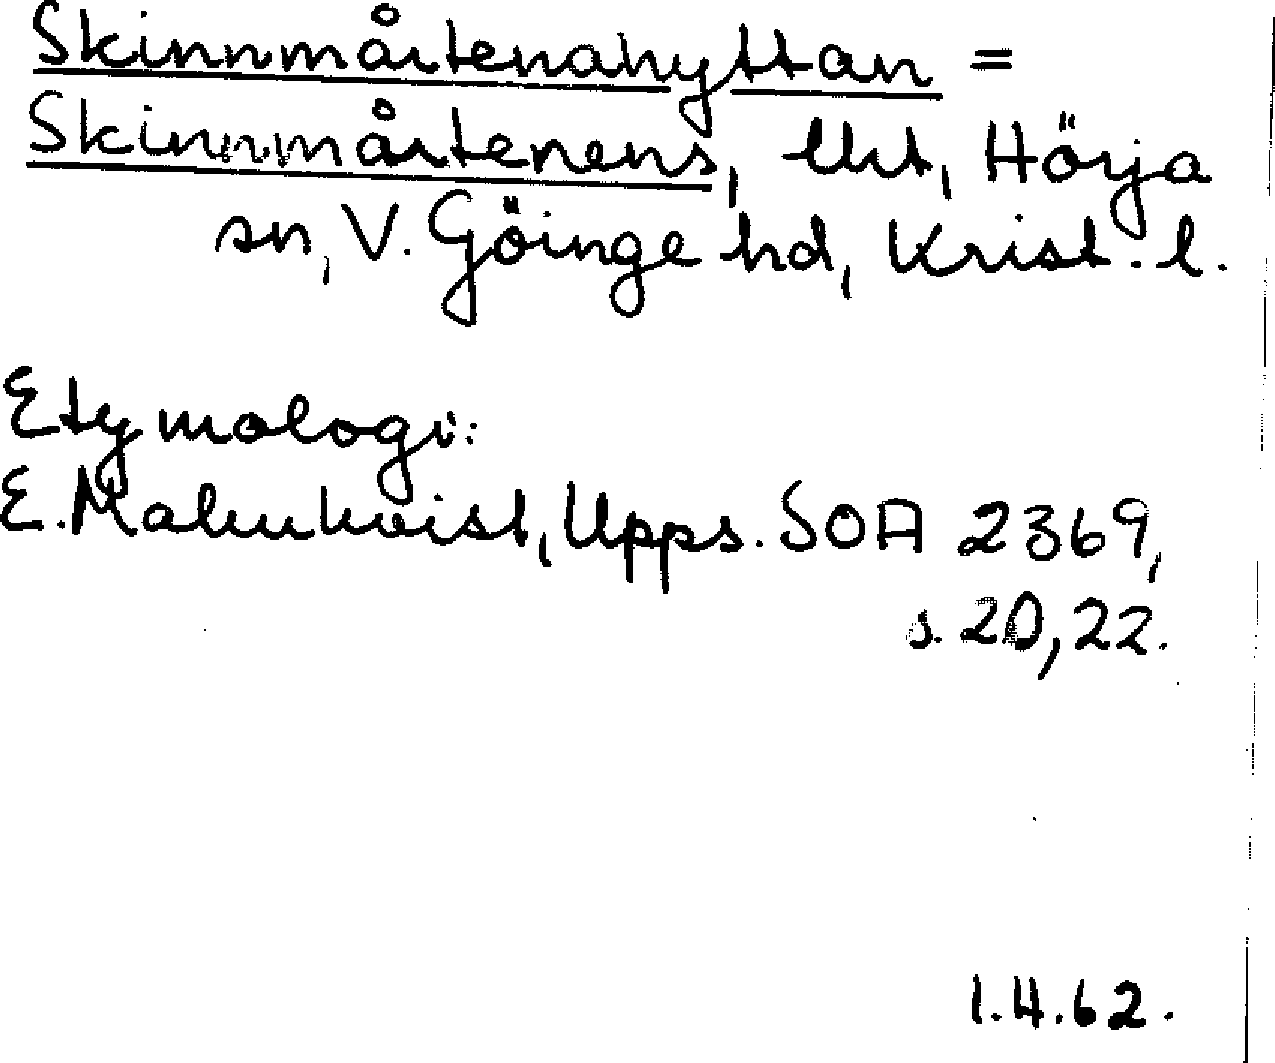 Skinnmårtenahyttan =
Skinnmårtenens, lht, Hörja
sn, V. Göinge hd, Krist. l.
Etymologi:
E. Malmkvist, Upps. SOA 2369,
s. 20, 22.
1.4.62.